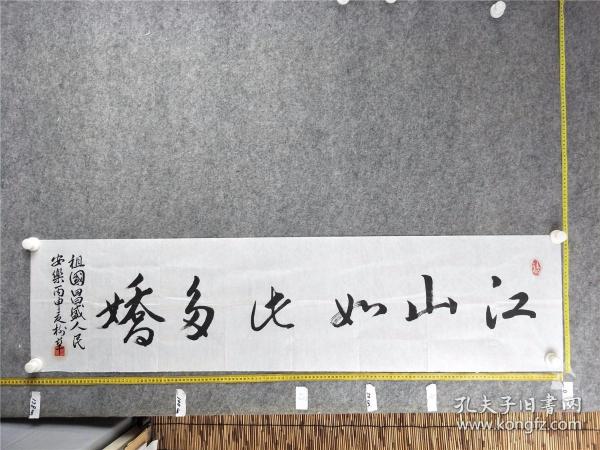 江山如此多嬌
祖國昌盛人民
安樂丙申夏樹草
孔夫子旧书网
www.kongfz.com